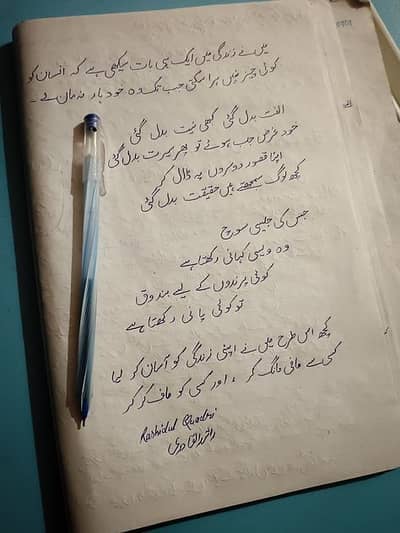 میں نے زندگی میں ایک ہی بات سیکھی ہے کہ انسان کو
کوئی چیز نہیں ہرا سکتی جب تک وہ خود ہار نہ مان لے ۔
الفت بدل گئی کبھی نیت بدل گئی
خود غرض جب ہوئے تو پھر سیرت بدل گئی
اپنا قصور دوسروں پہ ڈال کر
کچھ لوگ سمجھتے ہیں حقیقت بدل گئی
جس کی جیسی سوچ
وہ ویسی کہانی رکھتا ہے
کوئی پرندوں کے لیے بندوق
تو کوئی پانی رکھتا ہے
کچھ اس طرح میں نے اپنی زندگی کو آسان کر لیا
کسی سے مافی مانگ کر ، اور کسی کو ماف کر کر
Rashidul Quadri